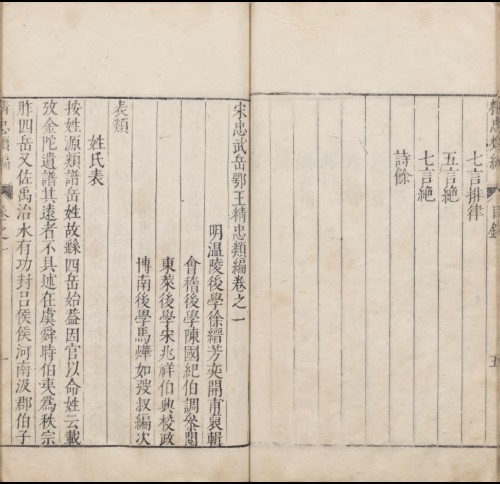 精忠類編
目錄
五
七言排律
五言絕
七言絕
詩餘
宋忠武岳鄂王精忠類編卷之一
明溫陵後學徐縉芳奕開甫裒輯
會稽後學陳國紀伯調參閱
東萊後學宋兆祥伯興校政
博南後學馬燁如弢叔編次
表類
姓氏表
按姓源類譜岳姓故繇四岳始葢因官以命姓云載
攷金陀遺譜其遠者不具述在虞舜時伯夷爲秩宗
胙四岳又佐禹治水有功封呂侯侯河南汲郡伯子
精忠類編
卷之一
一